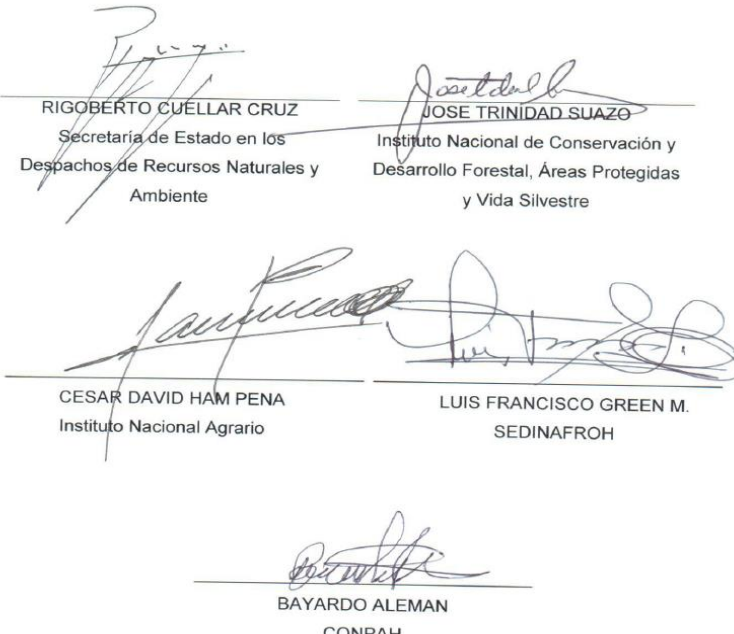 RIGOBERTO CUELLAR CRUZ
Secretaría de Estado en los
Despachos de Recursos Naturales y
Ambiente
JOSE TRINIDAD SUAZO
Instituto Nacional de Conservación y
Desarrollo Forestal, Áreas Protegidas
y Vida Silvestre
CESAR DAVID HAM PENA
Instituto Nacional Agrario
LUIS FRANCISCO GREEN M.
SEDINAFROH
BAYARDO ALEMAN
CONPAH